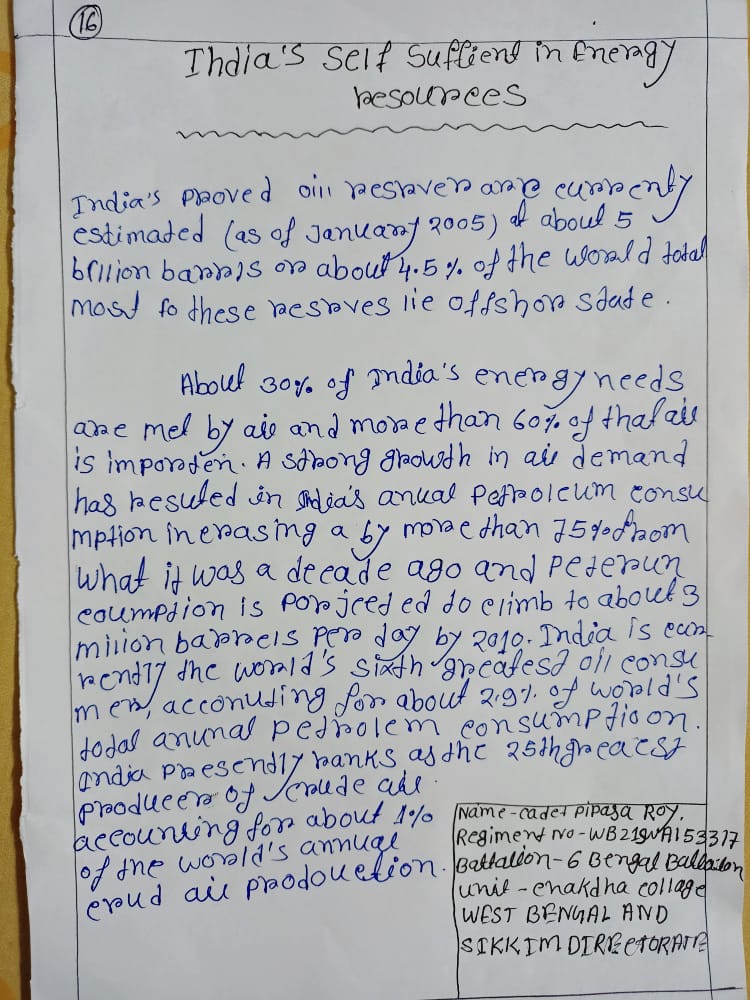 16
India's Self Suffient in Energy
resources
India's proved oill resrver are currenty
estimated (as of January 2005) at about 5
brllion barrels or about 4.5% of the world total
most fo these resrves lie offshor state.
About 30% of India's energy needs
are met by oil and more than 60% of that oil
is importen. A strong growth in oil demand
has resuted in India's anual Petroleum consu
mption incrasing a by more than 75% from
what it was a decade ago and Peterun
coumption is porjected to climb to about 3
milion barrels per day by 2010. India is curr
rently the world's sixth greatest oil consu
mer, acconuting for about 2.9% of world's
total anunal petrolem consumptioon.
India presently ranks as the 25th greacest
producer of crude oil
accounting for about 1%
of the world's annual
crud oil prodouction.
Name-cadet Pipasa Roy.
Regiment No-WB21SWA153317
Battalion-6 Bengal Battalion
unit-enakdha collage
WEST BENGAL AND
SIKKIM DIRECTORATE